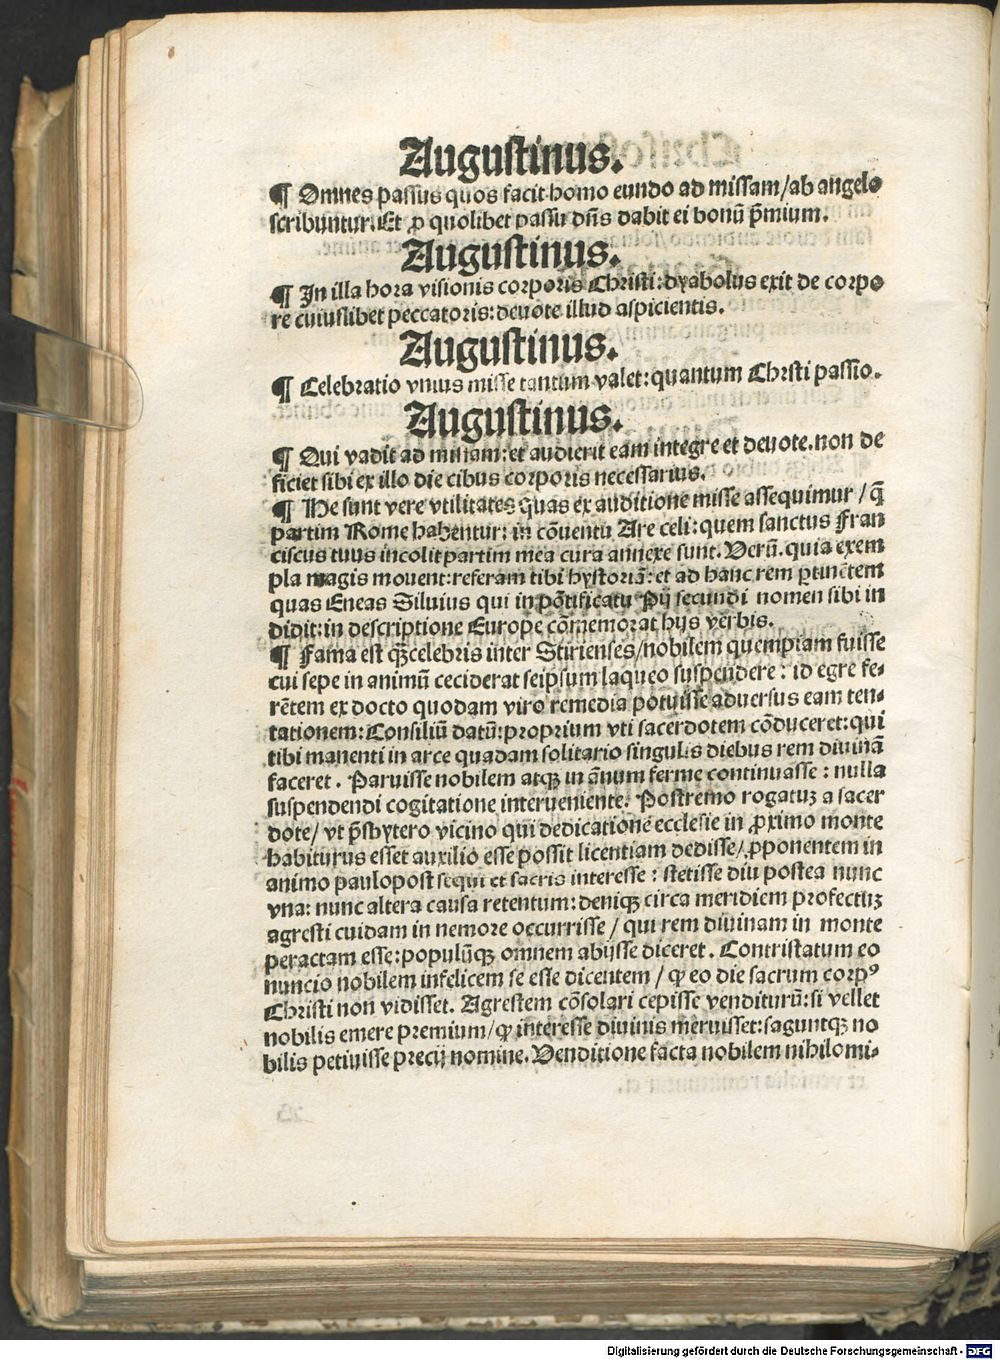 Augustinus.
¶ Omnes passus quos facit homo eundo ad missam/ab angelo
scribuntur. Et ꝓ quolibet passu dn̄s dabit ei bonū p̄mium.
Augustinus.
¶ In illa hora visionis corporis Christi: dyabolus exit de corpo
re cuiuslibet peccatoris: deuote illud aspicientis.
Augustinus.
¶ Celebratio vnius misse tantum valet: quantum Chrsti passio.
Augustinus.
¶ Qui vadit ad missam: et audierit eam integre et deuote. non de
ficiet sibi ex illo die cibus corporis necessarius.
¶ He sunt vere vtilitates quas ex auditione misse assequimur / q̄
partim Rome habentur: in cōuentu Are celi: quem sanctus Fran
ciscus tuus incolit partim mea cura annexe sunt. Verū. quia exem
pla magis mouent: referam tibi hystoriā: et ad hanc rem ꝑtinētem
quas Eneas Siluius qui in pōtificatu Pij secundi nomen sibi in
didit: in descriptione Europe cōmemorat hijs verbis.
¶ Fama est qꝫ celebris inter Stirienses/nobilem quempiam fuisse
cui sepe in animū ceciderat seipsum laqueo suspendere: id egre fe-
rētem ex docto quodam viro remedia potuisse aduersus eam ten-
tationem: Consiliū datū: proprium vti sacerdotem cōduceret: qui
tibi manenti in arce quadam solitario singulis diebus rem diuinā
faceret. Paruisse nobilem atqꝫ in ānum ferme continuasse: nulla
suspendendi cogitatione interueniente. Postremo rogatuꝫ a sacer
dote/ vt p̄sbytero vicino qui dedicationē ecclesie in ꝓximo monte
habiturus esset auxilio esse possit licentiam dedisse/ ꝓponentem in
animo paulopost sequi et sacris interesse: stetisse diu postea nunc
vna: nunc altera causa retentum: deniqꝫ circa meridiem profectuꝫ
agresti cuidam in nemore occurrisse / qui rem diuinam in monte
peractam esse: populūqꝫ omnem abijsse diceret. Contristatum eo
nuncio nobilem infelicem se esse dicentem / ꝙ eo die sacrum corpꝰ
Christi non vidisset. Agrestem cōsolari cepisse venditurū: si vellet
nobilis emere premium/ꝙ interesse diuinis meruisset: saguntqꝫ no
bilis petiuisse precij nomine. Venditione facta nobilem nihilomi-
Digitalisierung gefördert durch die Deutsche Forschungsgemeinschaft - DFG